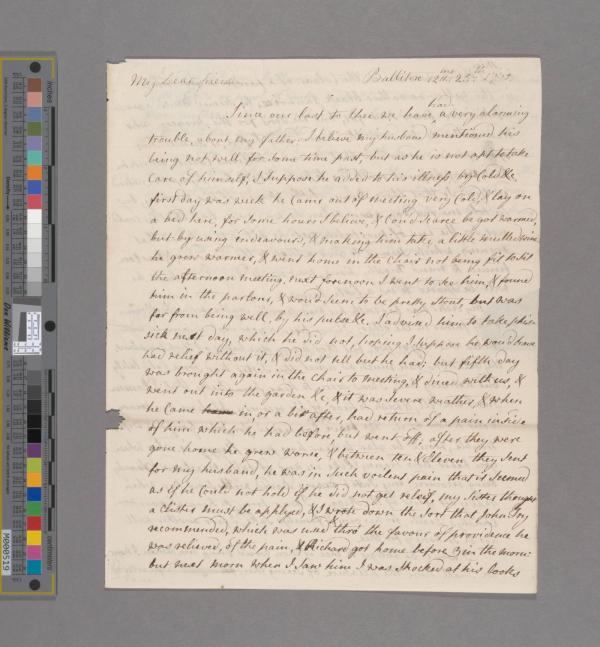 My Dear
Ballitore 12th mo 25th
had
Since our last to thee we have a very alarming
trouble, about my father, I believe my husband mentioned his
being not well for some time past, but as he is not apt to take
care of himself, I suppose he added to his illness by Cold &c
first day was week he came out of meeting very Cold, & lay on
a bed here, for some hours I believe, & Coud scarce be got warmed,
but by using endeavours, & making him take a little mulled wine
he grew warmer, & went home in the Chair not being fit to sit
the afternoon meeting, next forenoon I went to see him, & found
him in the parlour, & woud seem to be pretty stout, but was
far from being well, by his pulse &c. I advised him to take
sick next day, which he did not, hoping I suppose he would have
had relief without it, & did not tell but he had; but fifth day
was brought again in the Chair to meeting, & dined with us, &
went out into the garden &c, & it was severe weather, & when
he came in, or a bit after, had return of a pain inside
of him which he had before, but went off, after they were
gone home he grew worse, & between ten & Eleven they sent
for my husband, he was in such voilent pain that it seemed
as if he Could not hold if he did not get relief, my Sister thought
a Clister must be applyed, & I wrote down the sort that John
recommended, which was used & thro' the favour of providence he
was relieved, of the pain, & Richard got home before 3 in the morn:
but next morn when I saw him I was Shocked at his looks
M000519
centimeters
inches